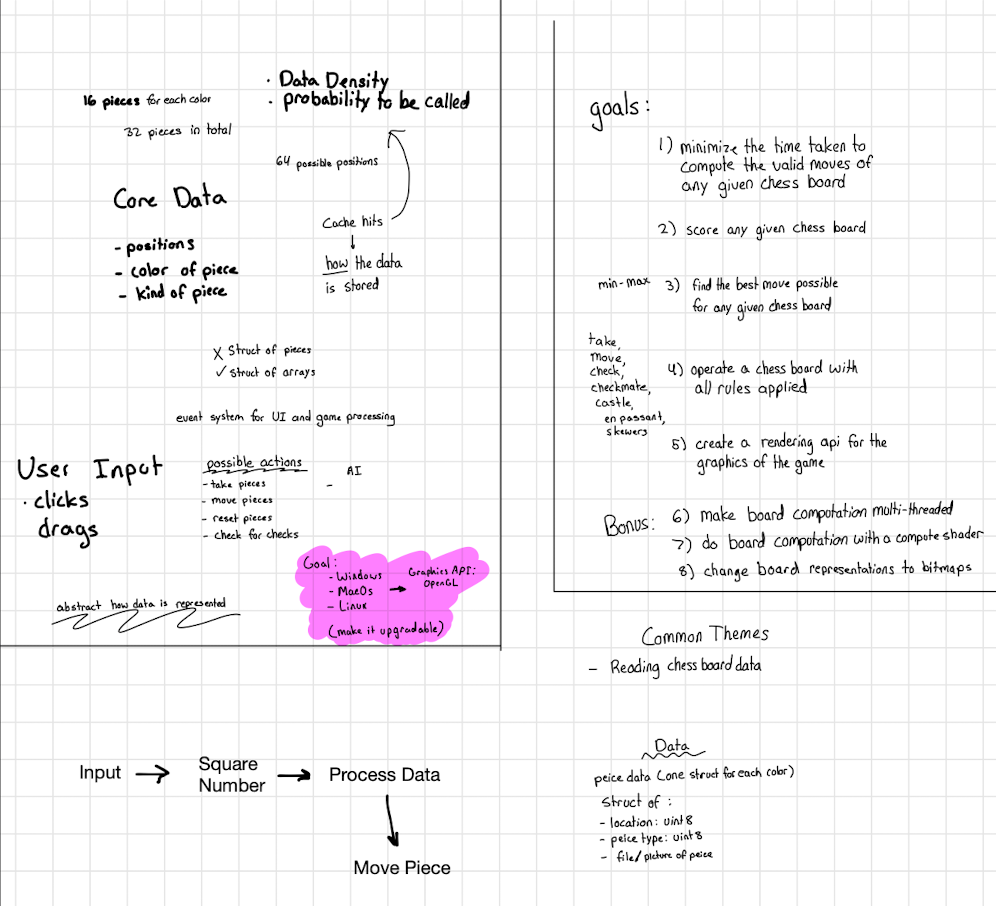 · Data Density
· probability to be called
16 pieces for each color
32 pieces in total
64 possible positions
Core Data
- positions
- color of piece
- kind of piece
Cache hits
how the data
is stored
X Struct of pieces
✓ Struct of arrays
event system for UI and game processing
User Input
· clicks
drags
possible actions
- take pieces
- move pieces
- reset pieces
- check for checks
AI
-
Goal:
- Windows
- MacOs
- Linux
(make it upgradable)
Graphics API:
OpenGL
abstract how data is represented
goals:
1) minimize the time taken to
compute the valid moves of
any given chess board
2) score any given chess board
min-max 3) find the best move possible
for any given chess board
take,
move,
check,
checkmate,
castle,
en passant,
skewers
4) operate a chess board with
all rules applied
5) create a rendering api for the
graphics of the game
Bonus:
6) make board computation multi-threaded
7) do board computation with a compute shader
8) change board representations to bitmaps
Common Themes
- Reading chess board data
Input
Square
Number
Process Data
Move Piece
Data
peice data (one struct for each color)
struct of :
- location: uint8
- peice type: uint8
- file/picture of peice